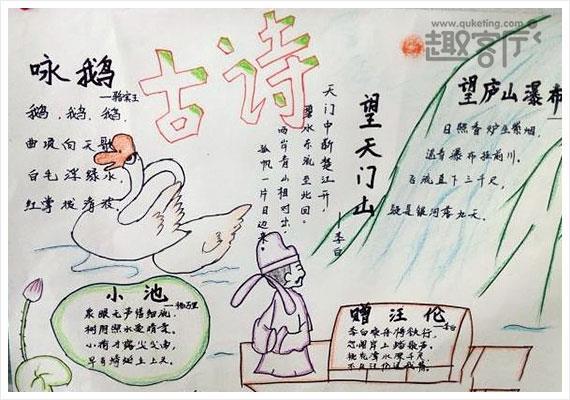 www.quketing.com
趣客厅
古诗
咏鹅
—骆宾王
鹅,鹅,鹅,
曲项向天歌
白毛浮绿水,
红掌拨清波
望天门山
—李白
天门中断楚江开,
碧水东流至此回。
两岸青山相对出,
孤帆一片日边来。
望庐山瀑布
日照香炉生紫烟,
遥看瀑布挂前川,
飞流直下三千尺,
疑是银河落九天。
小池
—杨万里
泉眼无声惜细流,
树阴照水爱晴柔。
小荷才露尖尖角,
早有蜻蜓立上头。
赠汪伦
—李白
李白乘舟将欲行,
忽闻岸上踏歌声。
桃花潭水深千尺,
不及汪伦送我情。